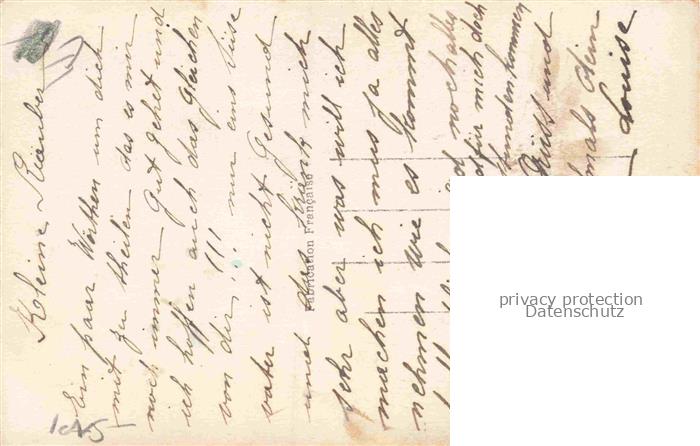 Kleine
Ein paar Worthen um dich
mit zu theilen das es mir
noch immer Gut geht und
ich hoffen auch das Gleichen
von dir!. !!! nur eins
vater ist nicht Gesund
und das mich
sehr aber was will ich
machen ich mus ja alles
nehmen wie es kommt
noch alles
für mich doch
kommen
Gruss und
mals dein
Louise
Fabrication Française
privacy protection
Datenschutz